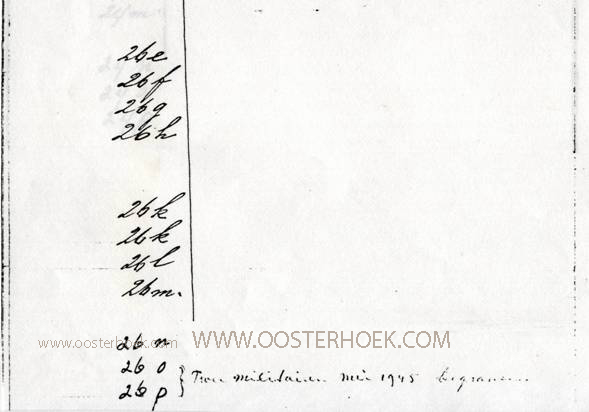 26e
26f
26g
26h
26k
26k
26l
26m.
26 n www.oosterhoek.com WWW.OOSTERHOEK.COM
26 o
26 p } Twee militairen Mei 1945 begraven